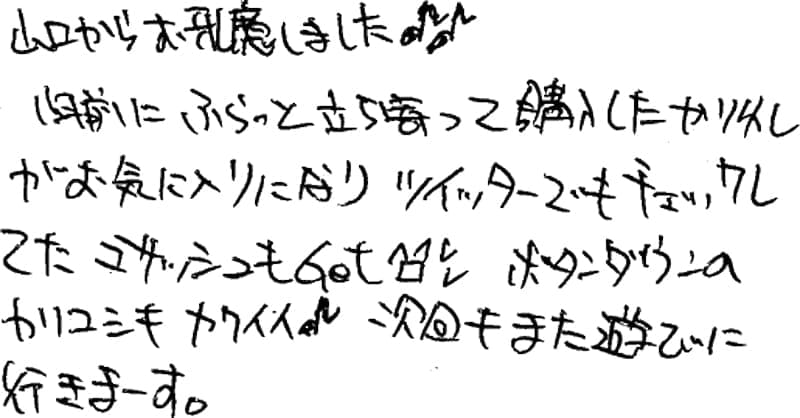 山口からお邪魔しました♪♪
以前にふらっと立ち寄って購入したかりゆし
がお気に入りになり ツイッターでもチェックし
てた コザッシュもGet ボタンダウンの
かりユシモ カワイイ♪ 次回もまた遊びに
行きまーす。